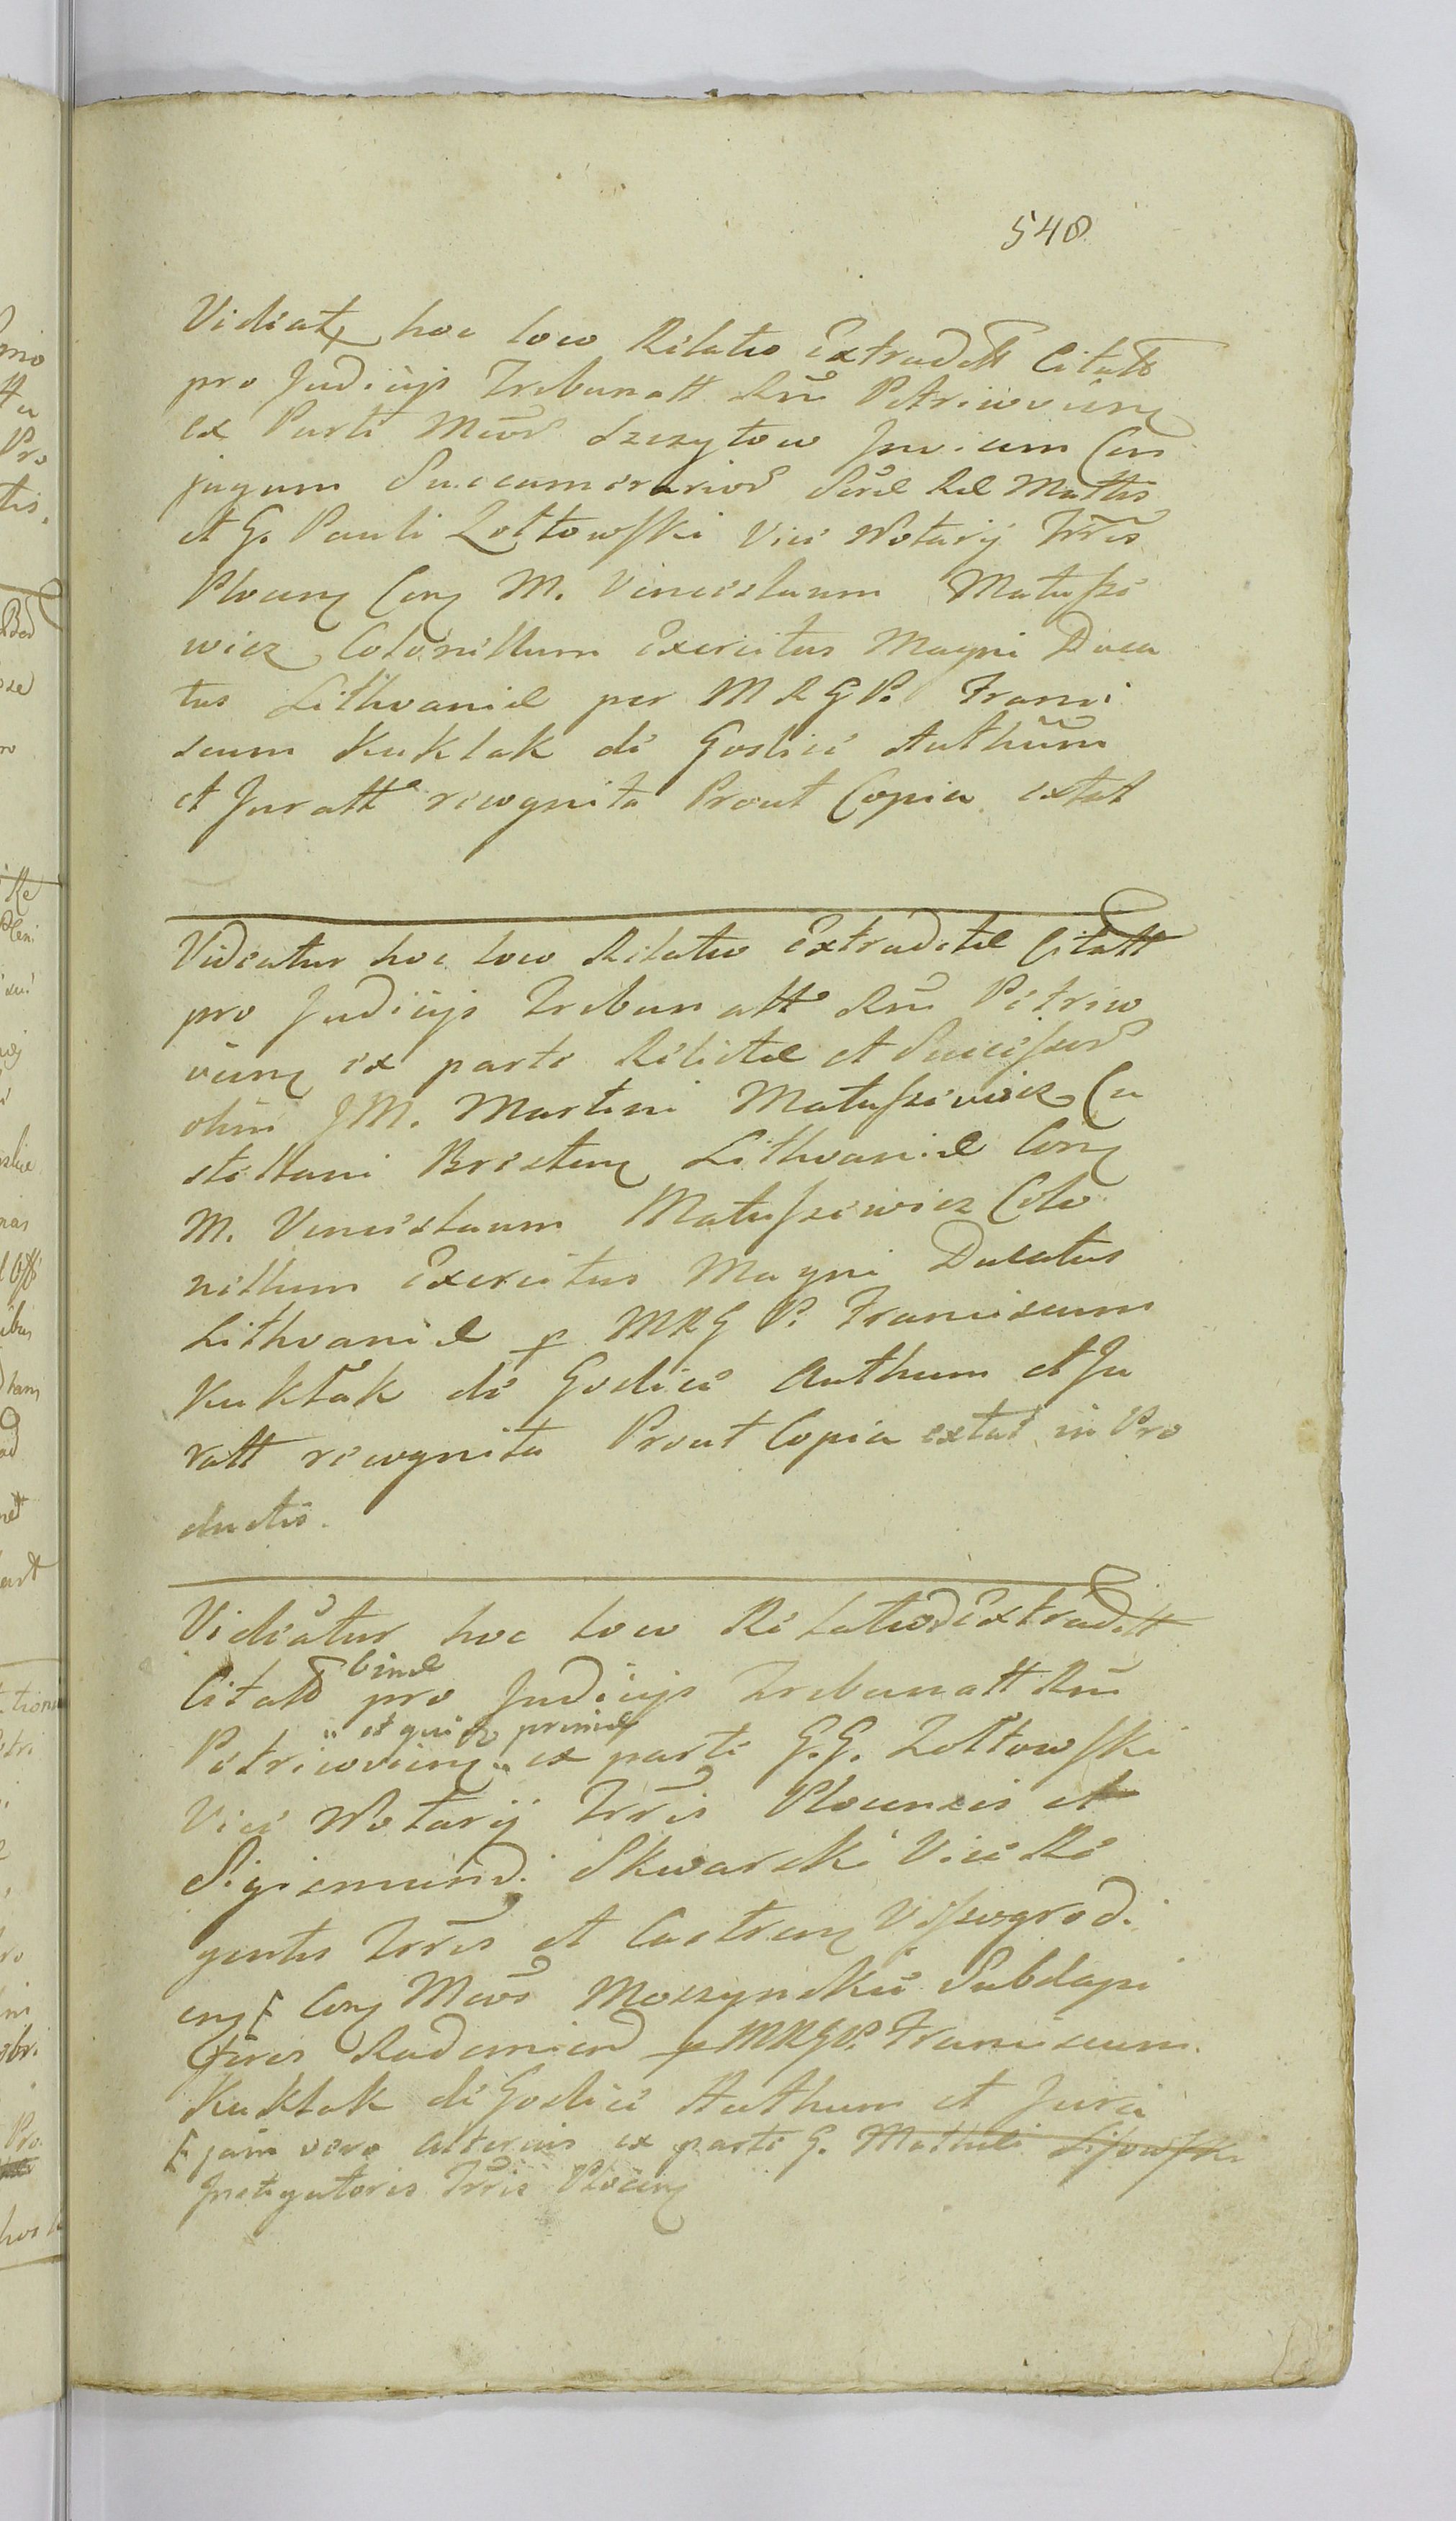 548
Videat hoc loco Relatio Extraditt Citatt
pro Judicijs Tribunatt Rni Petricovien
ex Parte Mcor Szczytow Invicem Con
jugum Succamerarior Sacrae Rae Mattis
et G. Pauli Zołtowski Vice Notarij Trris
Plocen Con M. Vincislaum Matusze
wicz Colonellum Exercitus Magni Duca
tus Lithvaniae per M R G P. Franci
scum Kuklak de Goslice Authum
et Juratt recognita Prout Copia extat
Videatur hoc loco Relatio Extraditae Citatt
pro Judicijs Tribunatt Rni Petrico
vien ex parte Relictae et Successor
olim JM. Martini Matuszewicz Ca
stellani Bresten Lithvaniae Con
M. Vincislaum Matuszewicz Colo
nellum Exercitus Magni Ducatus
Lithvaniae p MRG P. Franciscum
Kuklak de Goslice Authum et Ju
ratt recognita Prout Copia extat in Pro
ductis.
Videatur hoc loco Relatio Extraditt
binae
Citatt pro Judicijs Tribunatt Rni
et quid primae
Petricovien ex parte G.G. Zołtowski
Vice Notarij Trris Plocensis et
Sigismundi Skwarski Vice Re
gentis Trris et Castren Wyszogrod.
en Con Mcos Moszynskie Subdapi
feros Radomien p MRGP. Franciscum
Kuklak de Goslice Authum et Jura
jam vero alterius ex parte G. Mathei Lisowski
Instigatoris Trris Plocen